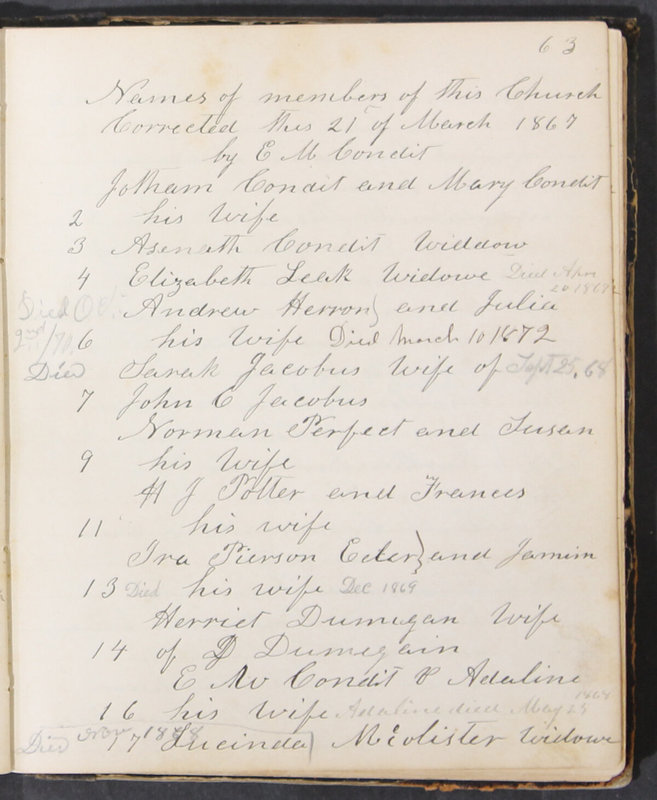 63
Names of members of this Church
Corrected this 21st of March 1867
by E M Condit
Jotham Condit and Mary Condit
2 his Wife
3 Asenath Condit Widdow
4 Elizabeth Leek Widowe Died Apr
20 1869
Died Oct Andrew Herron} and Julia
2nd/70 6 his Wife Died March 10 1872
Died Sarah Jacobus Wife of Sept 25, 68
7 John C Jacobus
Norman Perfect and Susan
9 his Wife
H J Potter and Frances
11 his wife
Ira Pierson Eeler} and Jamim
13 Died his wife Dec 1869
Herriet Dumigan Wife
14 of D Dumegain
E M Condit & Adaline
1868
16 his Wife Adaline died May 25
Died Nov 1888 17 Lucinda} Mcolister Widowe